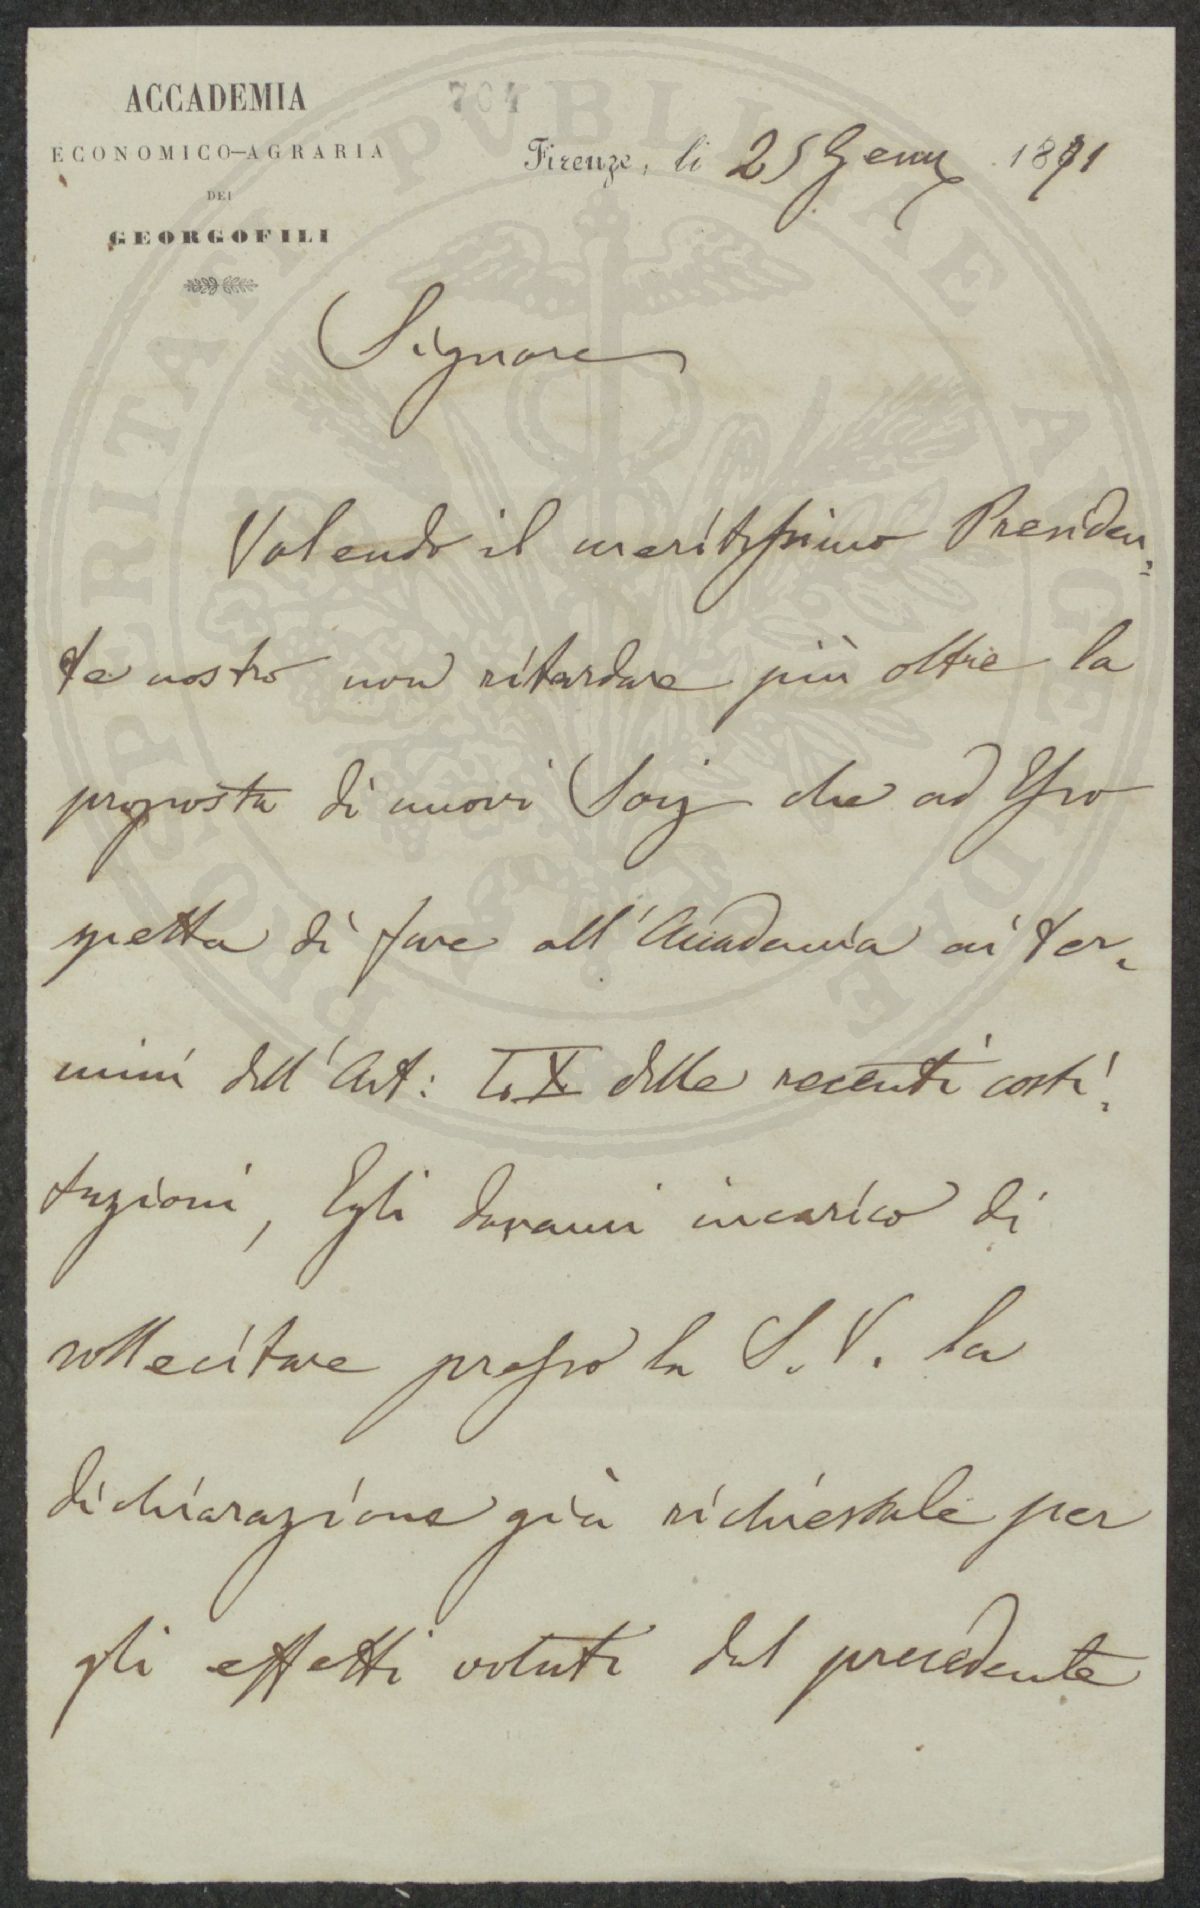 ACCADEMIA
ECONOMICO-AGRARIA
DEI
GEORGOFILI
704
Firenze, li 25 Genn 1871
Signore
Volendo il meritissimo Presiden=
te nostro non ritardare più oltre la
proposta di nuovi Socj che ad Esso
spetta di fare all'Accademia ai ter=
mini dell'Art: delle recenti costi=
tuzioni, Egli davami incarico di
sollecitare presso la S. V. la
dichiarazione già richiestale per
gli effetti voluti dal precedente
PROSPERITATI PVBLICAE AVGENDAE